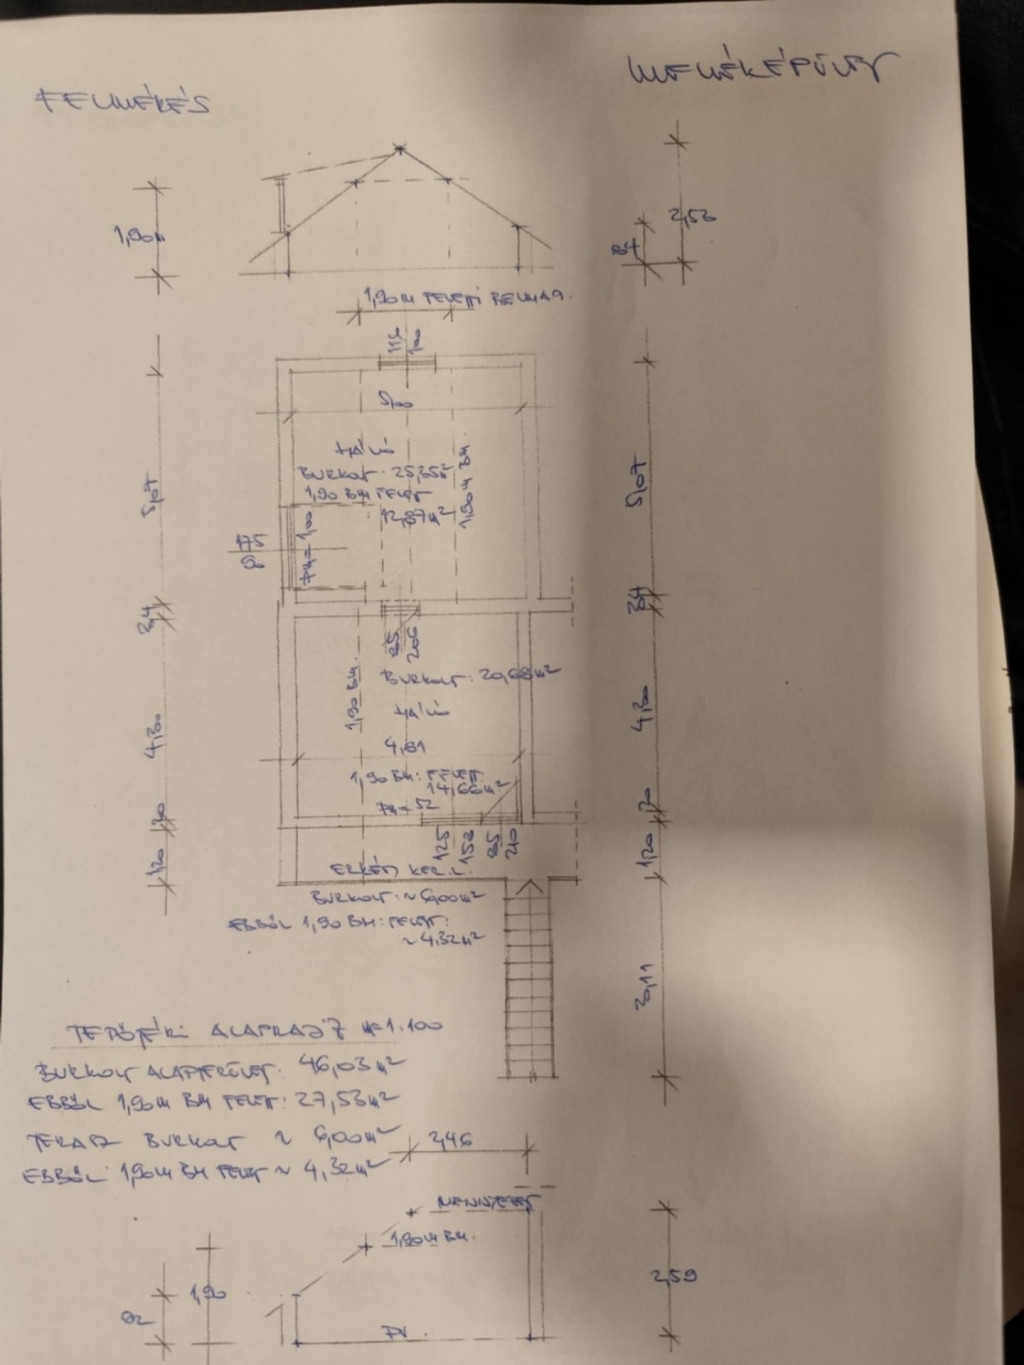 FELMÉRÉS
MELLÉKÉPÜLET
1,90m
2,53
87
1,90 M FELETTI BELMAG.
114
100
5,00
HÁLÓ
BURKOLT: 25,35m²
1,90 BM FELETT
12,87m²
1,90 M BM.
5,07
5,07
175
PM=1,00
34
34
85
206
BURKOLT: 20,68m²
HÁLÓ
1,90 BM.
4,81
4,30
4,30
1,90 BM: FELETT
14,66m²
PM=52
30
30
125
150
85
210
1,20
1,20
ERKÉLY
BURKOLT: ~6,00m²
EBBŐL 1,90 BM: FELETT:
~4,32m²
3,11
TETŐTÉRI ALAPRAJZ M=1:100
BURKOLT ALAPTERÜLET: 46,03m²
EBBŐL 1,90m BM FELETT: 27,53m²
TERASZ BURKOLT ~ 6,00m²
EBBŐL: 1,90m BM FELETT ~ 4,32m²
2,46
MENNYEZET
1,90 M BM.
1,90
2,59